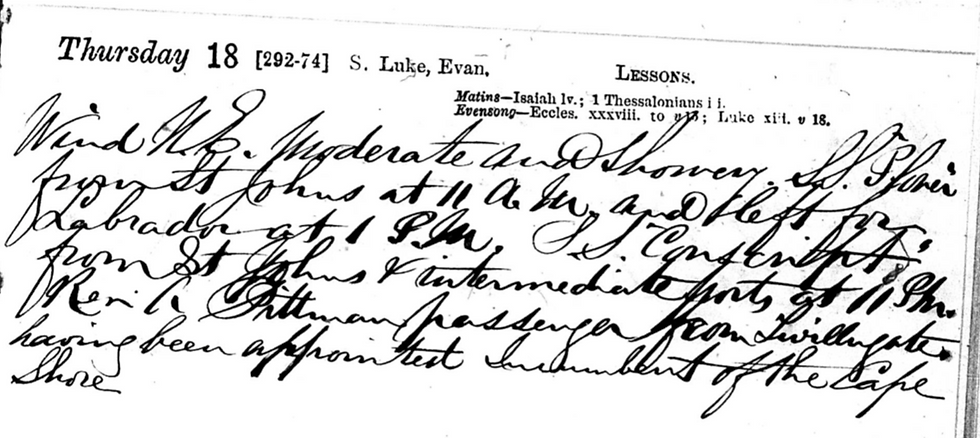 Thursday 18 [292-74] S. Luke, Evan.
LESSONS.
Matins—Isaiah lv.; 1 Thessalonians i i.
Evensong—Eccles. xxxviii. to v 15; Luke xiii. v 18.
Wind N.E. Moderate and Showery. S.S. "Plover"
from St Johns at 11 A.M. and left for
Labrador at 1 P.M. S.S. "Conscript"
from St Johns & intermediate ports at 11 P.M.
Rev. Pittman passenger from Twillingate
having been appointed Incumbent of the Cape
Shore